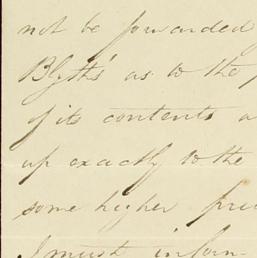 not be forwarded
Blyth's as to the
of its contents a
up exactly to the
some higher
I must inform